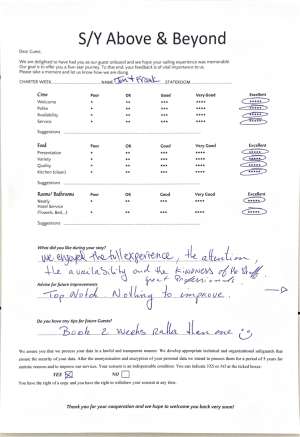 S/Y Above & Beyond
Dear Guest,
We are delighted to have had you as our guest onboard and we hope your sailing experience was memorable.
Our goal is to offer you a five-star journey. To that end, your feedback is of vital importance to us.
Please take a moment and let us know how we are doing
CHARTER WEEK NAME Jen + Frank STATEROOM
Crew Poor OK Good Very Good Excellent
Welcome * ** *** **** *****
Polite * ** *** **** *****
Availability * ** *** **** *****
Service * ** *** **** *****
Suggestions
Food Poor OK Good Very Good Excellent
Presentation * ** *** **** *****
Variety * ** *** **** *****
Quality * ** *** **** *****
Kitchen (clean) * ** *** **** *****
Suggestions
Rooms/ Bathrooms Poor OK Good Very Good Excellent
Neatly * ** *** **** *****
Hotel Service
(Towels, Bed...) * ** *** **** *****
Suggestions
What did you like during your stay?
We enjoyed the full experience, the attention,
the availability and the kindness of the staff.
great professionals
Advice for future improvements
Top Notch Nothing to improve.
Do you have any tips for future Guests?
Book 2 weeks rather then one
We assure you that we process your data in a lawful and transparent manner. We develop appropriate technical and organizational safeguards that
ensure the security of your data. After the anonymization and encryption of your personal data we intend to process them for a period of 5 years for
statistic reasons and to improve our services. Your consent is an indispensable condition. You can indicate YES or NO at the ticked boxes:
YES NO
You have the right of a copy and you have the right to withdraw your consent at any time.
Thank you for your cooperation and we hope to welcome you back very soon!